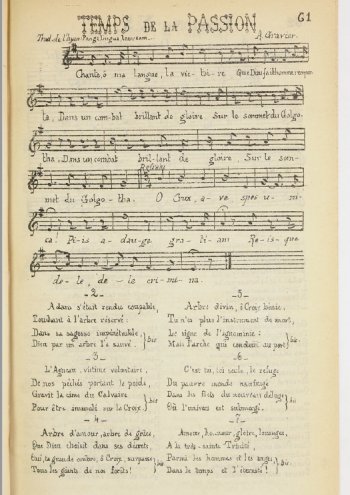 61
TEMPS DE LA PASSION
Chante, ô ma langue, la vic-toi-re Que Dieu fait homme rempor-
te, Dans un com-bat brillant de gloire, Sur le sommet du Golgo-
tha. Dans un combat bril-lant de gloire, Sur le som-
Refrain
met du Golgo-tha. O Crux, a-ve spes u-ni-
ca! Pi-is a-dau-ge gra-ti-am Re-is-que
de-le, de-le cri-mi-na.
-2-
Adam s'était rendu coupable,
Touchant à l'arbre réservé:
Dans sa sagesse impénétrable
Dieu par un arbre l'a sauvé. bis
-3-
L'Agneau, victime volontaire,
De nos péchés portant le poids,
Gravit la cime du Calvaire
Pour être immolé sur la Croix. bis
-4-
Arbre d'amour, arbre de grâce,
Que Dieu choisit dans ses décrets,
Oui, ta grandeur ombre, ô Croix, surpasse
Tous les géants de nos forêts! bis
-5-
Arbre divin, ô Croix bénie,
Tu n'es plus l'instrument de mort,
Le signe de l'ignominie:
Mais l'arche qui conduit au port. bis
-6-
C'est toi, toi seule, le refuge
Du pauvre monde naufragé
Dans les flots du nouveau déluge
Où l'univers est submergé. bis
-7-
Amour, honneur, gloire, louanges,
A la très-sainte Trinité
Parmi les hommes et les anges
Dans le temps et l'éternité! bis